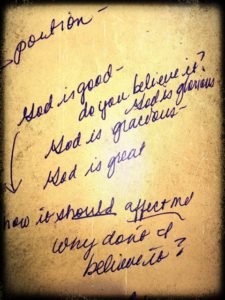 portion -
God is good -
do you believe it?
God is glorious
God is gracious -
God is great
how it should affect me
why don't I
believe it?